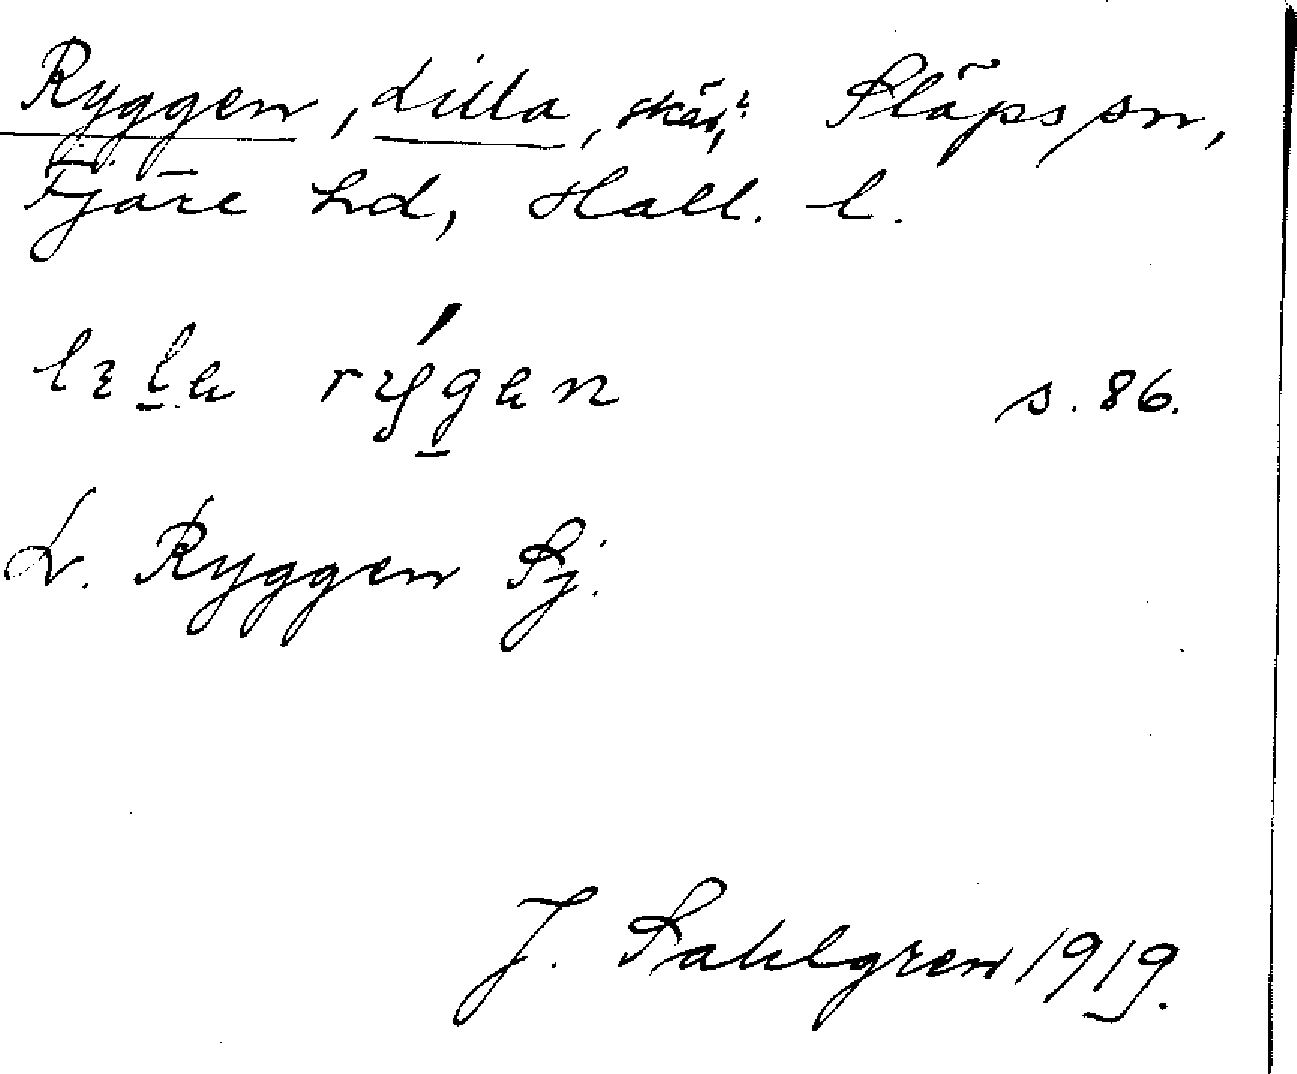 Ryggen, Lilla, skär, i Släps sn,
Fjäre hd, Hall. l.
lɩla rýgan s. 86.
L. Ryggen Sj.
J. Sahlgren 1919.